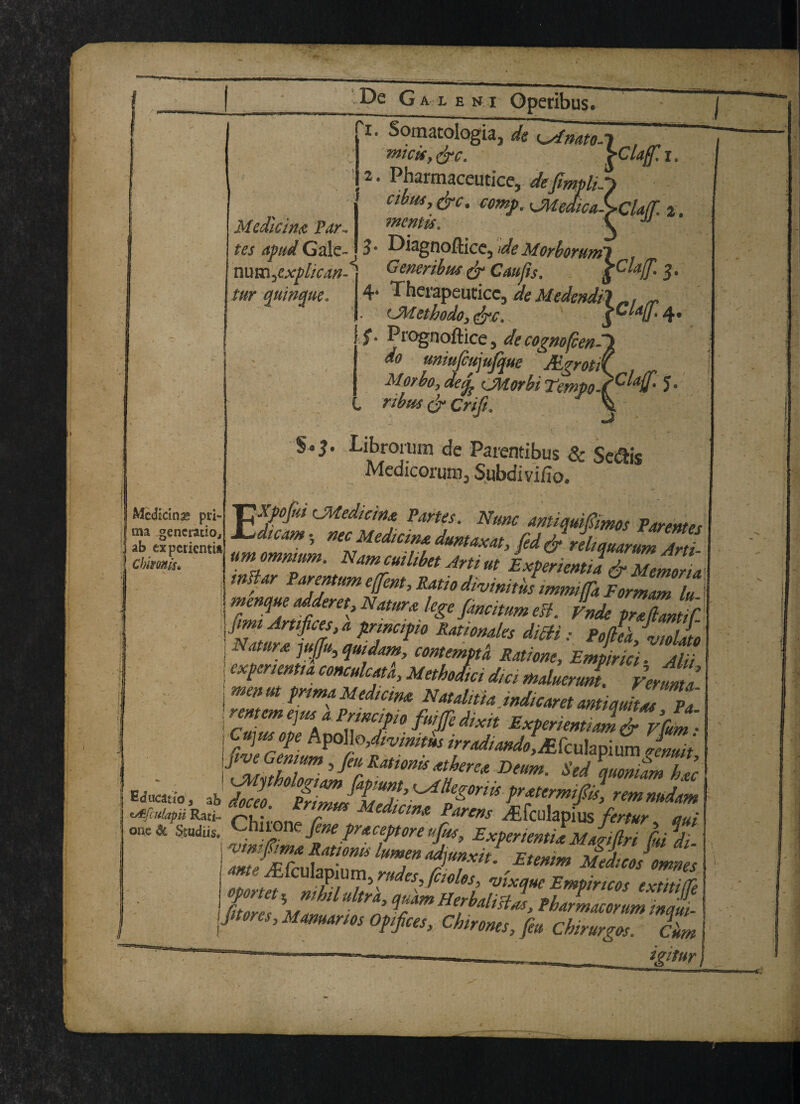 De GALENI Operibus.
Medicinæ Par-
tes apud Gale-
num, explican-
tur quinque.
1. Somatologia, de Anato-
micis, &c. Class. 1.
2. Pharmaceutice, de simpli-
cibus, &c. comp. Medica-
mentis. Class. 2.
3. Diagnostice, de Morborum
Generibus & Causis. Class. 3.
4. Therapeutice, de Medendi
Methodo, &c. Class. 4.
5. Prognostice, de cognoscen-
do uniuscujusque Ægroti
Morbo, deq; Morbi Tempo-
ribus & Crisi. Class. 5.
§. 3. Librorum de Parentibus & Sectis
Medicorum, Subdivisio.
Medicinæ pri-
ma generatio,
ab experientia
Chironis.
EXposui Medicinæ Partes. Nunc antiquißimos Parentes
dicam; nec Medicinæ duntaxat, sed & reliquarum Arti-
um omnium. Nam cuilibet Arti ut Experientia & Memoria
instar Parentum essent, Ratio divinitùs immissa Formam lu-
menque adderet, Naturæ lege sancitum est. Vnde præstantis-
simi Artifices, à principio Rationales dicti: Posteà, violato
Naturæ jussu, quidam, contemptâ Ratione, Empirici; Alii,
experientiâ conculcatâ, Methodici dici maluerunt. Verunta-
men ut prima Medicinæ Natalitia indicaret antiquitas, Pa-
rentem ejus à Principio fuisse dixit Experientiam & Vsum:
Cujus ope Apollo, divinitùs irradiando, Æsculapium genuit,
sive Genium, seu Rationis æthereæ Deum. Sed quoniam hæc
Mythologiam sapiunt, Allegoriis prætermißis, rem nudam
doceo. Primus Medicinæ Parens Æsculapius fertur, qui
Chirone sene præceptore usus, Experientiæ Magistri sui di-
vinißima Rationis lumen adjunxit. Etenim Medicos omnes
ante Æsculapium, rudes, sciolos, vixque Empiricos extitisse
oportet; nihil ultrà, quàm Herbalistas, Pharmacorum inqui-
sitores, Manuarios Opifices, Chirones, seu Chirurgos. Cùm
Educatio, ab
Æsculapii Rati-
one & Studiis.
igitur